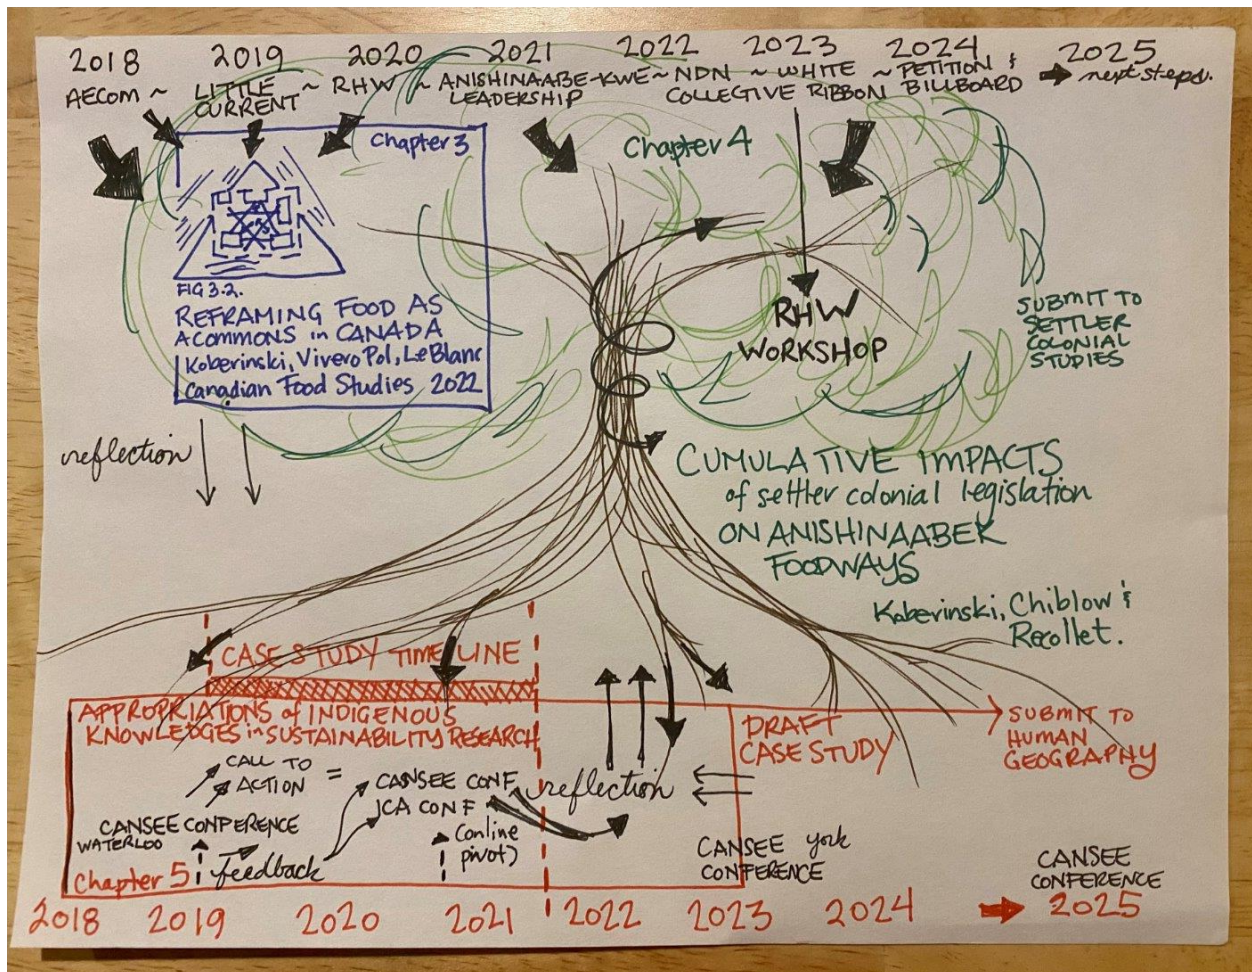 2018 2019 2020 2021 2022 2023 2024 2025
AECOM ~ LITTLE CURRENT ~ RHW ~ ANISHINAABE-KWE LEADERSHIP ~ NDN COLLECTIVE ~ WHITE RIBBON ~ PETITION & BILLBOARD → next steps.
Chapter 3
FIG 3.2.
REFRAMING FOOD AS
A COMMONS in CANADA
Koberinski, Vivero Pol, LeBlanc
Canadian Food Studies 2022
Chapter 4
RHW
WORKSHOP
SUBMIT TO
SETTLER
COLONIAL
STUDIES
reflection
CUMULATIVE IMPACTS
of settler colonial legislation
ON ANISHINAABEK
FOODWAYS
Koberinski, Chiblow &
Recollet.
CASE STUDY TIMELINE
APPROPRIATIONS of INDIGENOUS
KNOWLEDGES in SUSTAINABILITY RESEARCH
DRAFT
CASE STUDY
SUBMIT TO
HUMAN
GEOGRAPHY
CALL TO
ACTION =
CANSEE CONF
JCA CONF
(online
pivot)
reflection
CANSEE CONFERENCE
WATERLOO
feedback
Chapter 5
CANSEE york
CONFERENCE
CANSEE
CONFERENCE
2018 2019 2020 2021 2022 2023 2024 → 2025